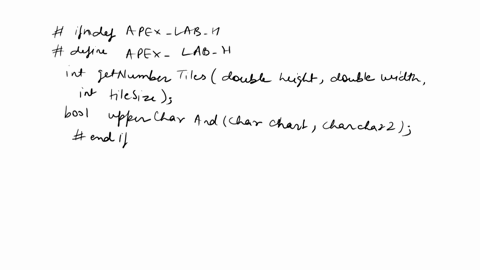 # ifndef APEX-LAB-H
# define APEX-LAB-H
int getNumber Tiles (double height, double width,
int tileSize);
bool upperChar And (char char1, char char2);
# endif